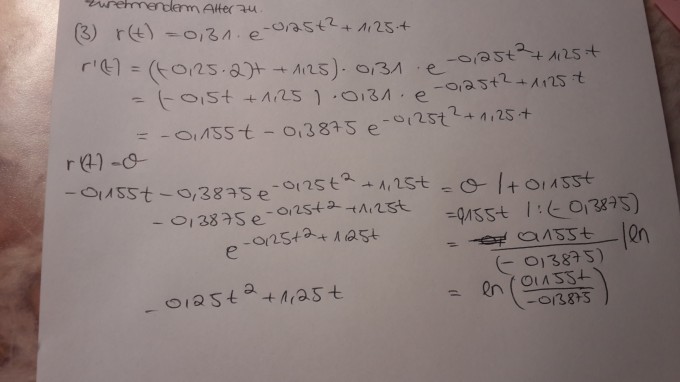 zunehmendem Alter zu.
(3) r(t) = 0,31 · e^-0,25t² + 1,25·t
r'(t) = ((-0,25·2)t + 1,25) · 0,31 · e^-0,25t² + 1,25·t
= (-0,5t + 1,25) · 0,31 · e^-0,25t² + 1,25t
= -0,155t - 0,3875 e^-0,25t² + 1,25·t
r(t) = 0
-0,155t - 0,3875e^-0,25t² + 1,25t = 0 |+ 0,155t
-0,3875e^-0,25t² + 1,25t = 0,155t |:(-0,3875)
e^-0,25t² + 1,25t = 0,155t/(-0,3875) |ln
-0,25t² + 1,25t = ln(0,155t/-0,3875)